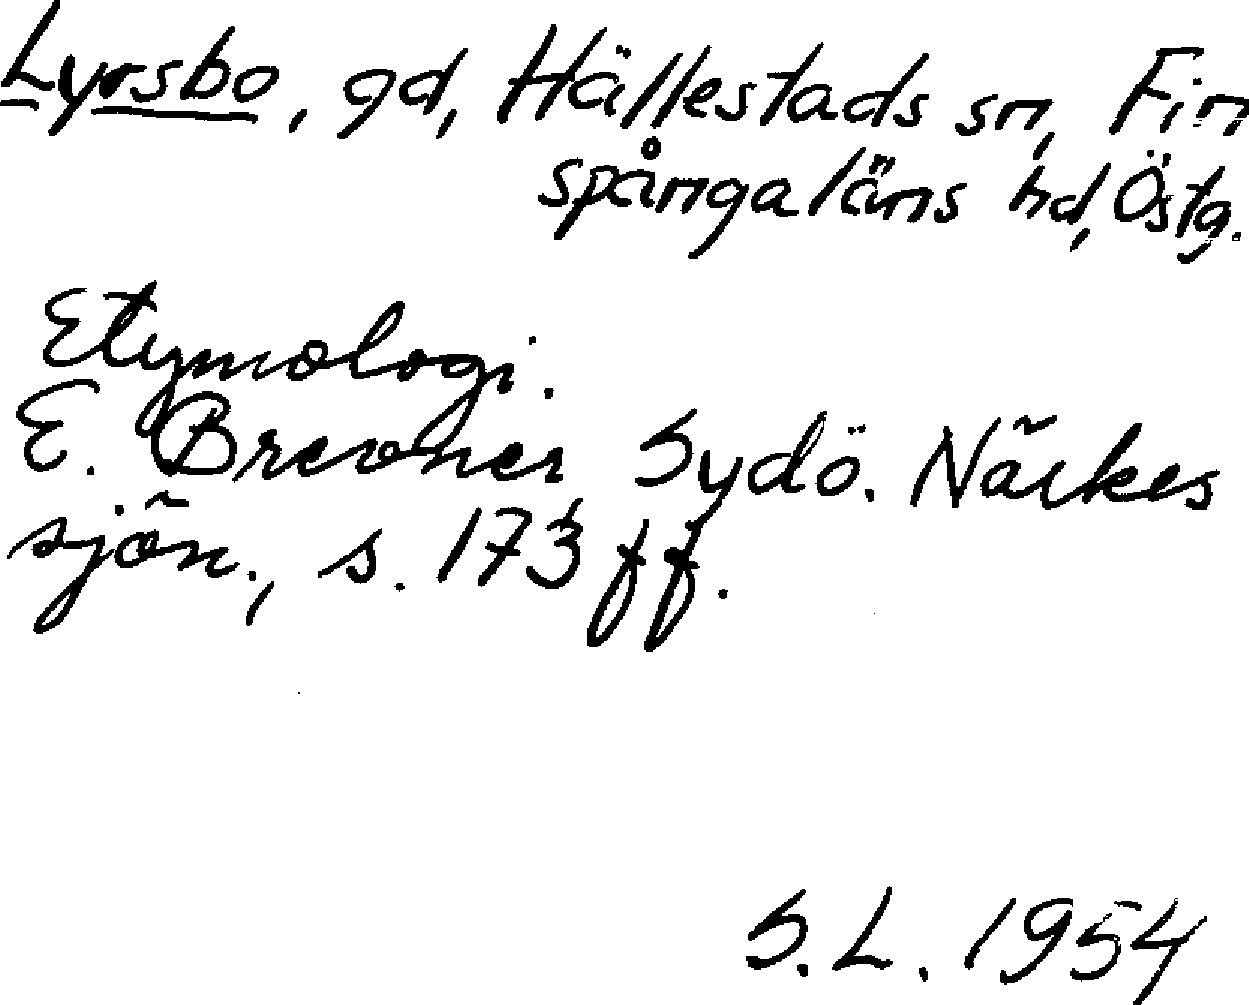 Lyrsbo, gd, Hällestads sn, Fin
spångaläns hd, Östg.
Etymologi.
E. Brevner, Sydö. Närkes
sjön., s. 173 ff.
S.L. 1954